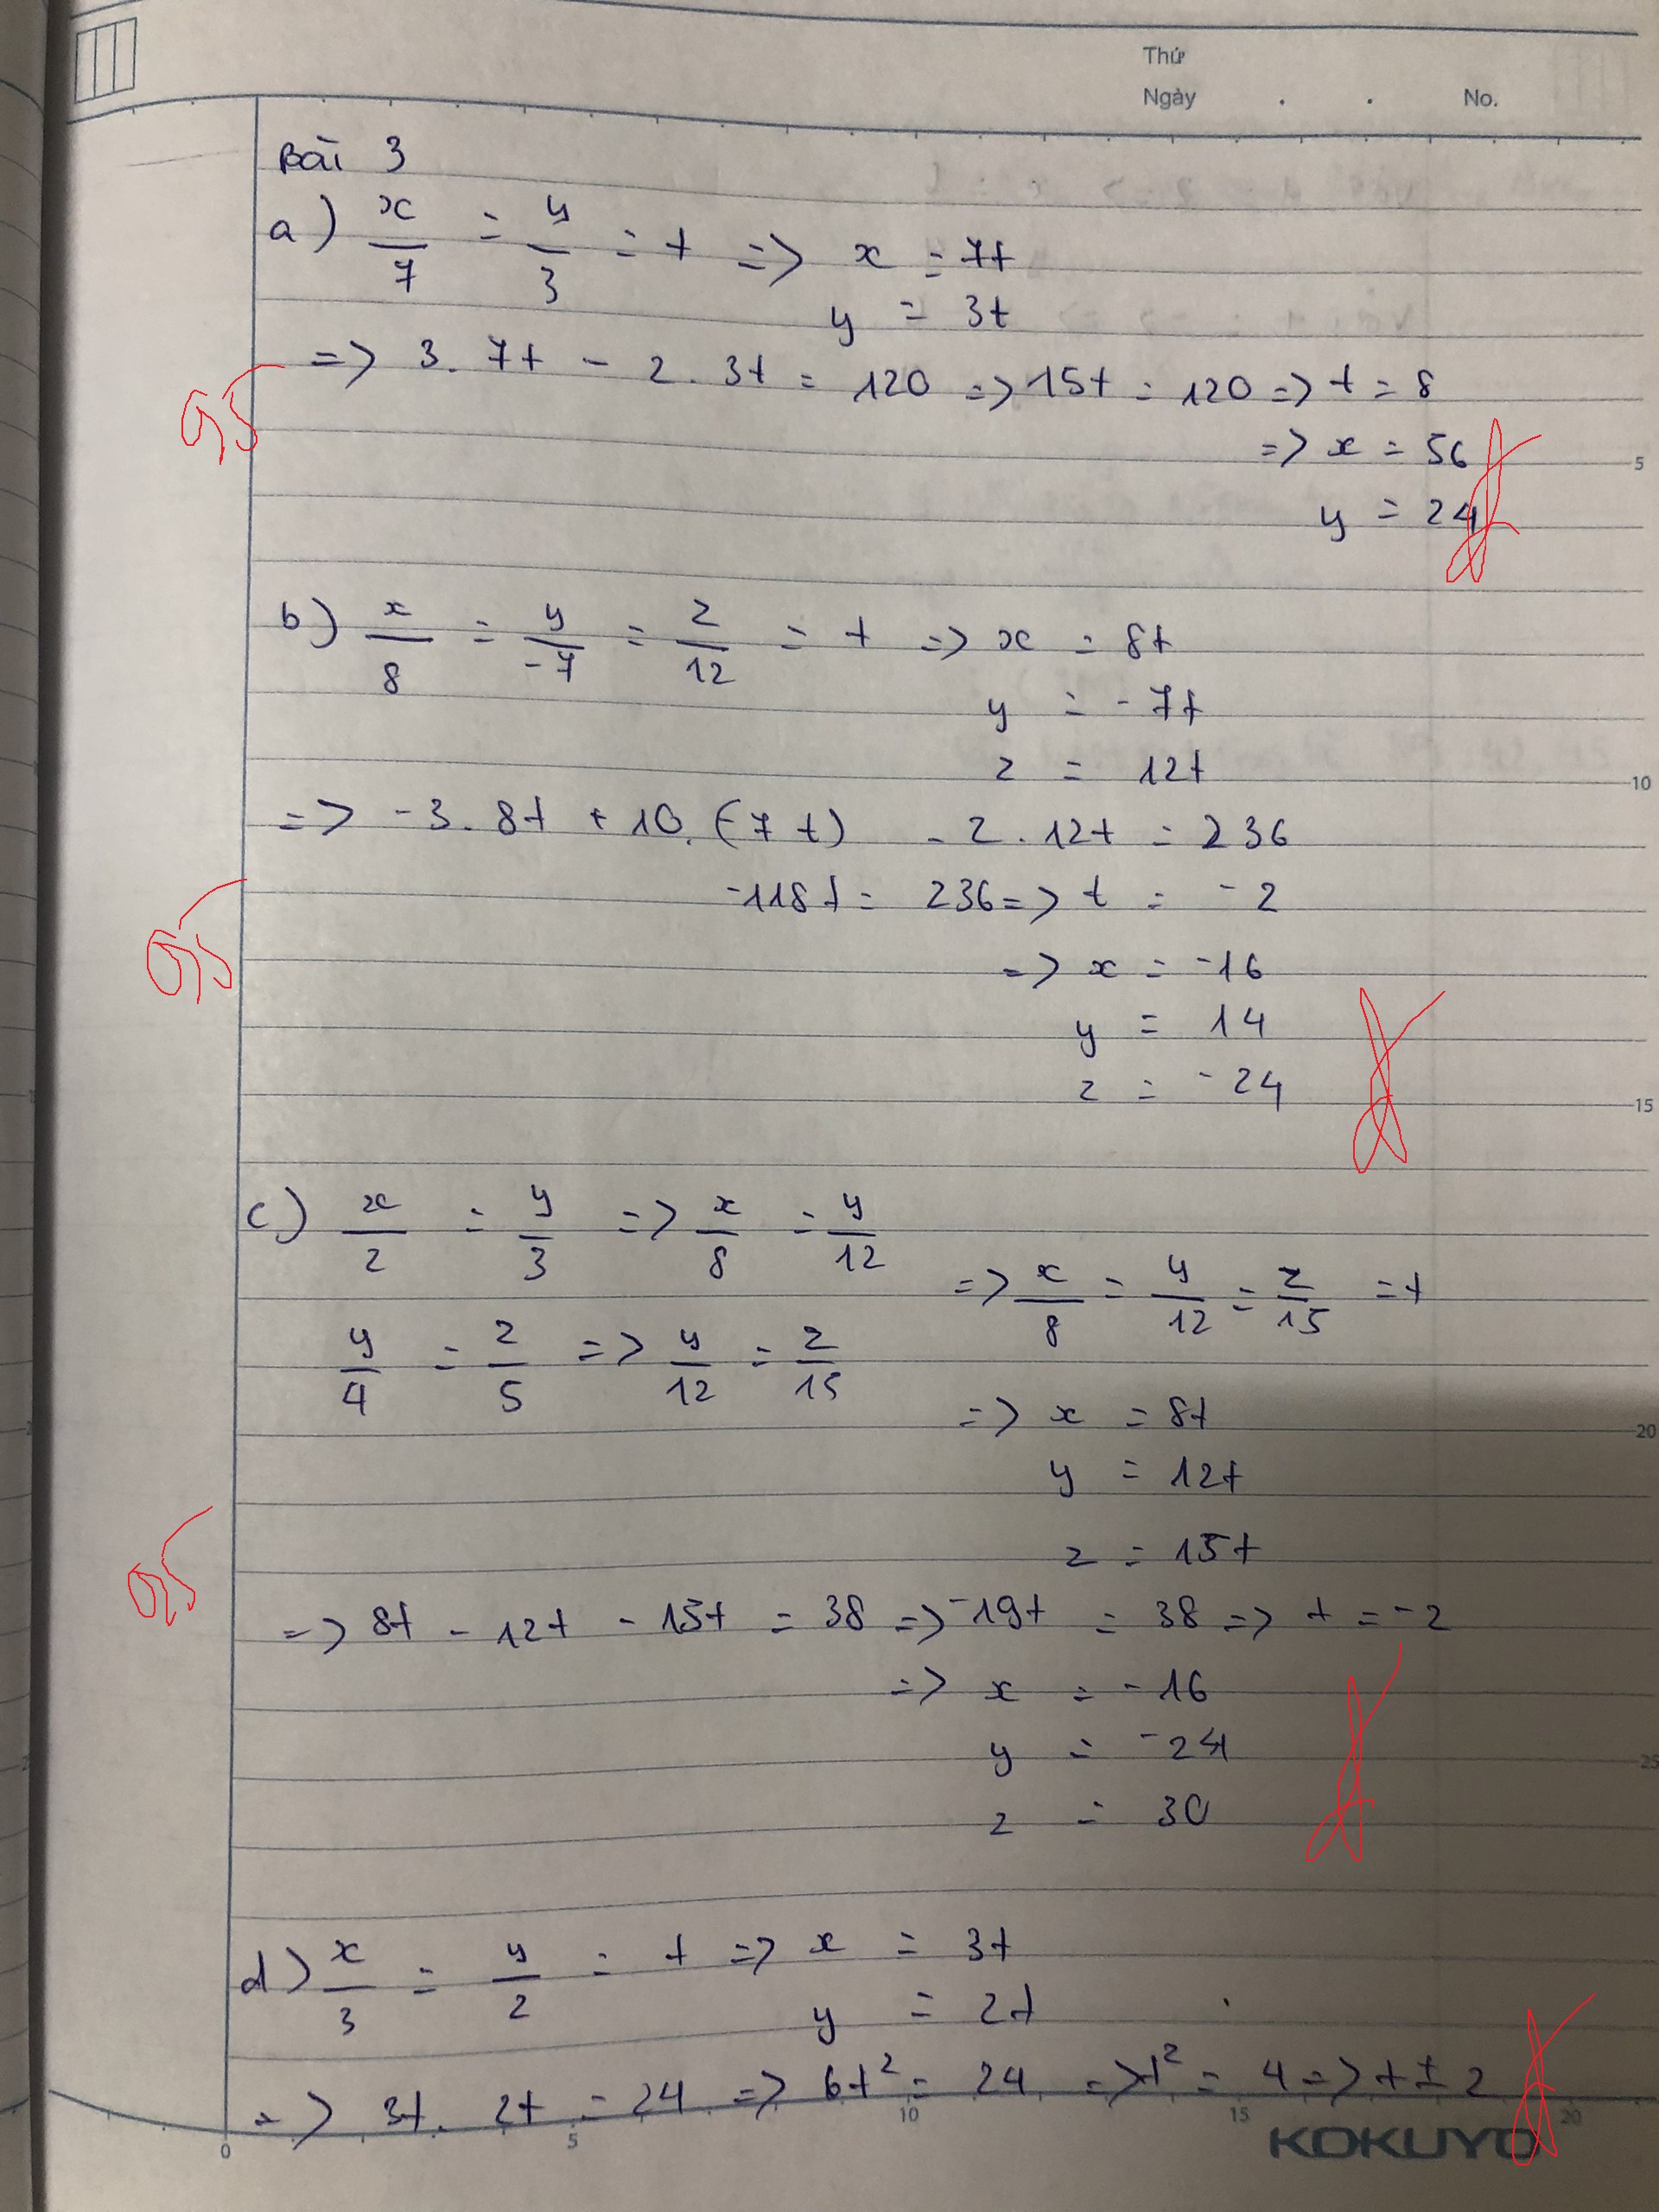 Thứ
Ngày . . No.
Bài 3
a) x/7 = y/3 = t => x = 7t
y = 3t
=> 3. 7t - 2. 3t = 120 => 15t = 120 => t = 8
0,5
=> x = 56
5
y = 24
b) x/8 = y/-7 = z/12 = t => x = 8t
y = -7t
z = 12t
10
=> -3. 8t + 10. (-7t) - 2. 12t = 236
-118t = 236 => t = -2
0,5
=> x = -16
y = 14
z = -24
15
c) x/2 = y/3 => x/8 = y/12
=> x/8 = y/12 = z/15 = t
y/4 = z/5 => y/12 = z/15
=> x = 8t
20
y = 12t
z = 15t
0,5
=> 8t - 12t - 15t = 38 => -19t = 38 => t = -2
=> x = -16
y = -24
25
z = 30
d) x/3 = y/2 = t => x = 3t
y = 2t
=> 3t. 2t = 24 => 6t² = 24 => t² = 4 => t ± 2
0 5 10 15 20
KOKUYO